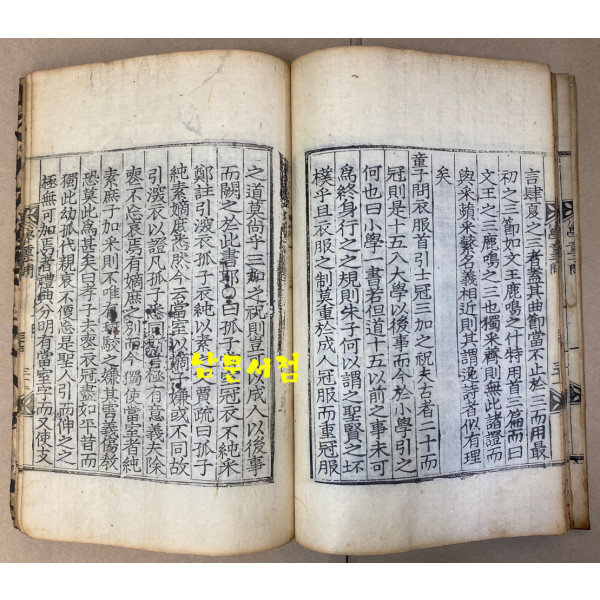 言肆夏之三者蓋其曲節當不止於三而用最
初之三節如文王鹿鳴之什特用首三篇而曰
文王之三鹿鳴之三也獨采齊則無此諸證而
與采蘋采蘩名義相近則其謂逸詩者似有理
矣
童子問衣服首引士冠三加之祝夫古者二十而
冠則是十五入大學以後事而今於小學引之
何也曰小學一書若但道十五以前之事未可
爲終身行之之規則朱子何以謂之聖賢之坏
樸乎且衣服之制莫重於成人冠服而重冠服
之道莫尚乎三加之祝則豈以成人以後事
而闕之於此書耶
曰孤子當室冠衣不純采
鄭註引深衣孤子衣純以素
賈疏曰孤子
純素嫡庶悉然今云當室以
嫌或不同故
引深衣以證凡孤子
極有意義夫除
喪不忘哀焉者有嫡庶
獨使當室者純
素庶子加采則不唯有
較之嫌其害義傷敎
恐莫此爲甚矣曰孝子去喪衣冠盡如平昔而
獨此幼孤代親衰不偯忘是聖人引而伸之之
極無可加焉者禮典分明有當室字而又使支
낮문서점